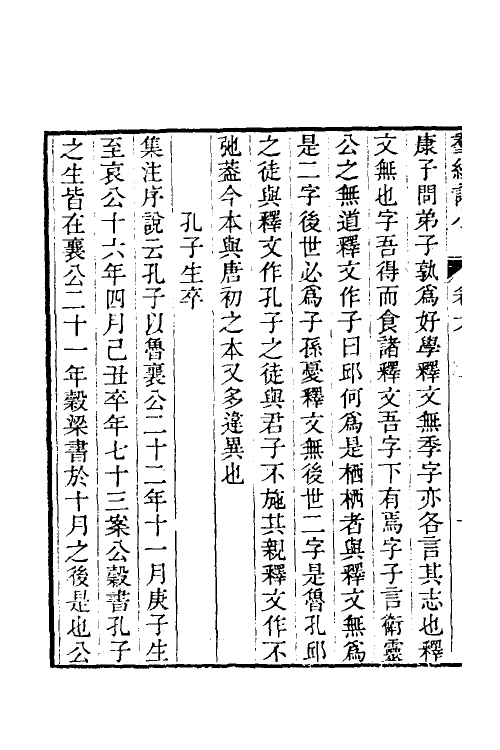 康子問弟子孰爲好學釋文無季字亦各言其志也釋
文無也字吾得而食諸釋文吾字下有焉字子言衞靈
公之無道釋文作子曰邱何爲是栖栖者與釋文無爲
是二字後世必爲子孫憂釋文無後世二字是魯孔邱
之徒與釋文作孔子之徒與君子不施其親釋文作不
弛葢今本與唐初之本又多違異也
孔子生卒
集注序說云孔子以魯襄公二十二年十一月庚子生
至哀公十六年四月己丑卒年七十三案公穀書孔子
之生皆在襄公二十一年穀梁書於十月之後是也公